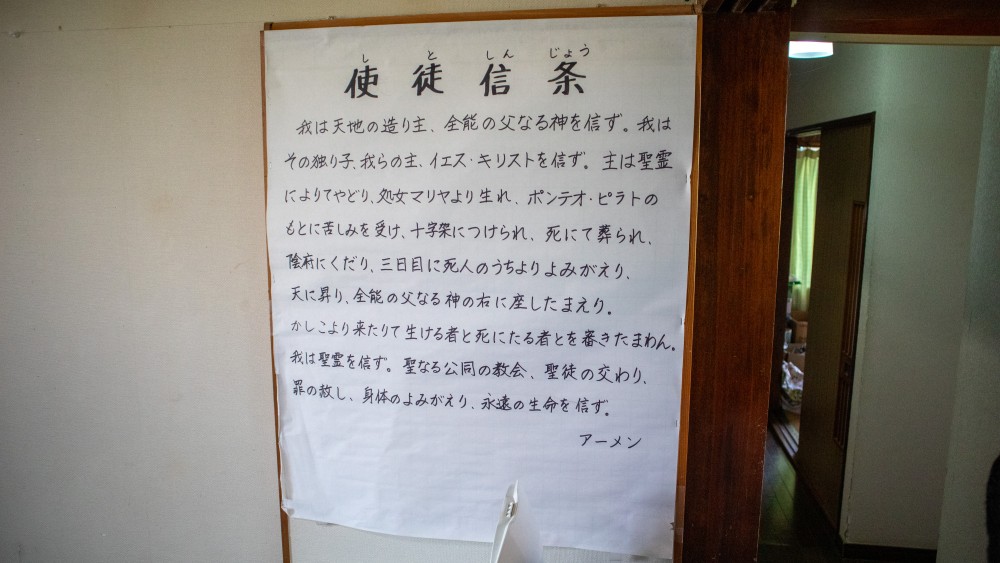 しとしんじょう
使徒信条
我は天地の造り主、全能の父なる神を信ず。我は
その独り子、我らの主、イエス・キリストを信ず。主は聖霊
によりてやどり、処女マリヤより生れ、ポンテオ・ピラトの
もとに苦しみを受け、十字架につけられ、死にて葬られ、
陰府にくだり、三日目に死人のうちよりよみがえり、
天に昇り、全能の父なる神の右に座したまえり。
かしこより来たりて生ける者と死にたる者とを審きたまわん。
我は聖霊を信ず。聖なる公同の教会、聖徒の交わり、
罪の赦し、身体のよみがえり、永遠の生命を信ず。
アーメン